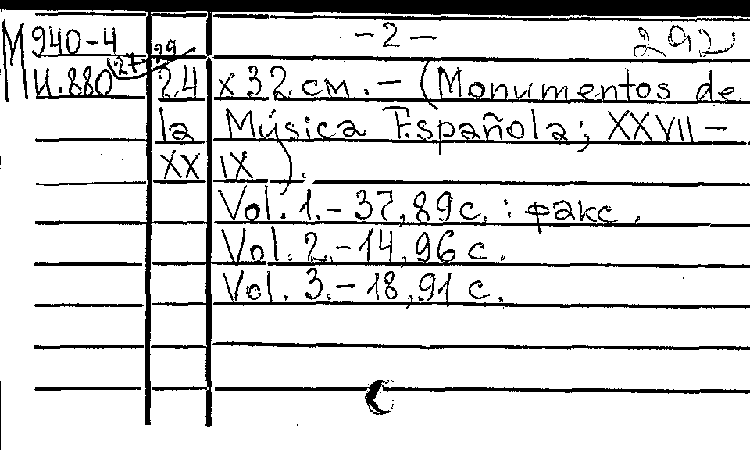 М 940-4 -2- 292
И.880 27-29 24 x 32 см. - (Monumentos de
la Música Española; XXVII -
XXIX).
Vol. 1. - 37, 89 с. : факс.
Vol. 2. - 14, 96 с.
Vol. 3. - 18, 91 с.